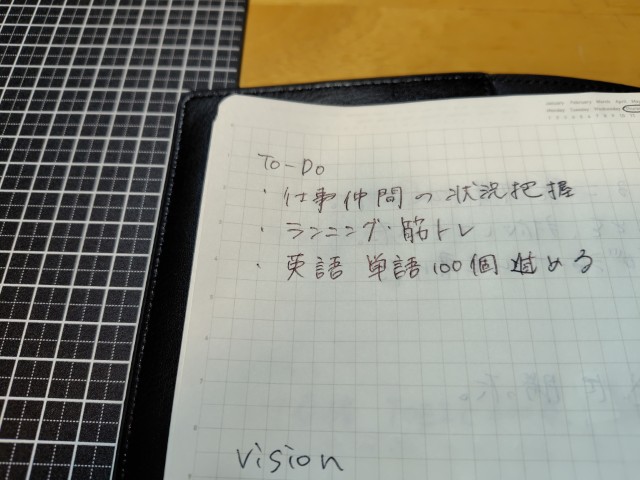 January February March April
Monday Tuesday Wednesday
To-Do
・仕事仲間の状況把握
・ランニング・筋トレ
・英語 単語100個進める
vision